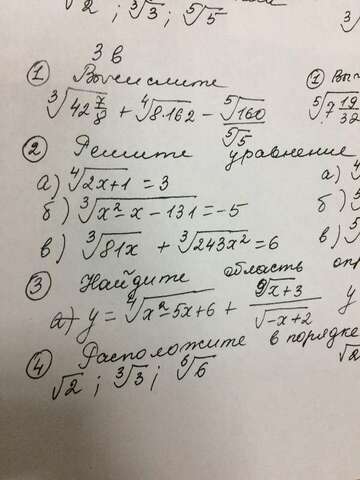 √2 ; ³√3 ; ⁵√5
3 в
① Вычислите ① Вы
³√(42 7/8) + ⁴√(8·162) − ⁵√160/⁵√5 ⁵√(7 19/32
② Решите уравнение
а) ⁴√(2x+1) = 3 а)
б) ³√(x²−x−131) = −5 б)
в) ³√(81x) + ³√(243x²) = 6 в)
③ Найдите область оп
а) y = ⁷√(x²−5x+6) + ⁹√(x+3)/√(−x+2) y
④ Расположите в порядке
√2 ; ³√3 ; ⁶√6 √2